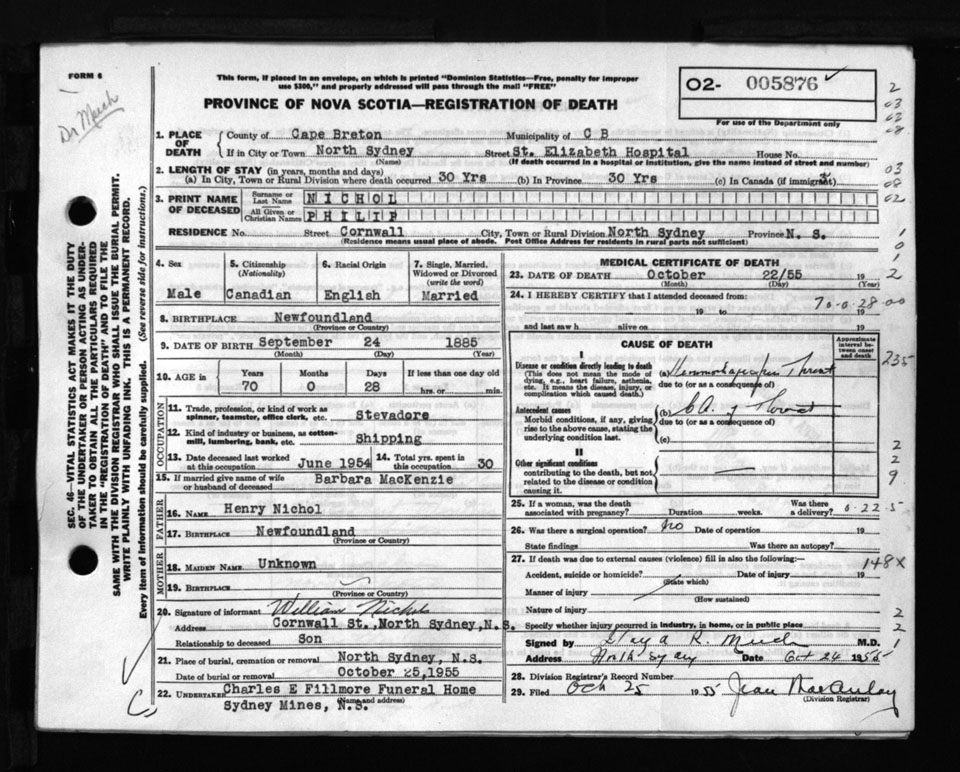 FORM 6
Dr Much
This form, if placed in an envelope, on which is printed "Dominion Statistics—Free, penalty for improper
use $300," and properly addressed will pass through the mail "FREE"
PROVINCE OF NOVA SCOTIA—REGISTRATION OF DEATH
O2- 005876
For use of the Department only
SEC. 46—VITAL STATISTICS ACT MAKES IT THE DUTY
OF THE UNDERTAKER OR PERSON ACTING AS UNDER-
TAKER TO OBTAIN ALL THE PARTICULARS REQUIRED
IN THE "REGISTRATION OF DEATH" AND TO FILE THE
SAME WITH THE DIVISION REGISTRAR WHO SHALL ISSUE THE BURIAL PERMIT.
WRITE PLAINLY WITH UNFADING INK. THIS IS A PERMANENT RECORD.
Every item of information should be carefully supplied. (See reverse side for instructions.)
1. PLACE OF DEATH County of Cape Breton Municipality of C B
If in City or Town North Sydney Street St. Elizabeth Hospital House No.
(Name) (If death occurred in a hospital or institution, give the name instead of street and number)
2. LENGTH OF STAY (in years, months and days)
(a) In City, Town or Rural Division where death occurred 30 Yrs (b) In Province 30 Yrs (c) In Canada (if immigrant)
3. PRINT NAME OF DECEASED Surname or Last Name NICHOL
All Given or Christian Names PHILIP
RESIDENCE No. Street Cornwall City, Town or Rural Division North Sydney Province N. S.
(Residence means usual place of abode. Post Office Address for residents in rural parts not sufficient)
4. Sex 5. Citizenship (Nationality) 6. Racial Origin 7. Single, Married, Widowed or Divorced (write the word)
Male Canadian English Married
8. BIRTHPLACE Newfoundland
(Province or Country)
9. DATE OF BIRTH September 24 1885
(Month) (Day) (Year)
10. AGE in Years Months Days If less than one day old
70 0 28 hrs. or min.
OCCUPATION
11. Trade, profession, or kind of work as spinner, teamster, office clerk, etc. Stevadore
12. Kind of industry or business, as cotton-mill, lumbering, bank, etc. Shipping
13. Date deceased last worked at this occupation June 1954 14. Total yrs. spent in this occupation 30
15. If married give name of wife or husband of deceased Barbara MacKenzie
FATHER
16. NAME Henry Nichol
17. BIRTHPLACE Newfoundland
(Province or Country)
MOTHER
18. MAIDEN NAME Unknown
19. BIRTHPLACE
(Province or Country)
20. Signature of informant William Nichol
Address Cornwall St., North Sydney, N.S.
Relationship to deceased Son
21. Place of burial, cremation or removal North Sydney, N.S.
Date of burial or removal October 25,1955
22. UNDERTAKER Charles E Fillmore Funeral Home
(Name and address)
Sydney Mines, N.S.
MEDICAL CERTIFICATE OF DEATH
23. DATE OF DEATH October 22/55 19
(Month) (Day) (Year)
24. I HEREBY CERTIFY that I attended deceased from:
19 to 19
and last saw h alive on 19
CAUSE OF DEATH
Approximate interval between onset and death
I
Disease or condition directly leading to death
(This does not mean the mode of dying, e.g., heart failure, asthenia, etc. It means the disease, injury, or complication which caused death.)
(a) Throat
due to (or as a consequence of)
Antecedent causes
Morbid conditions, if any, giving rise to the above cause, stating the underlying condition last.
(b) CA. of Throat
due to (or as a consequence of)
(c)
II
Other significant conditions
contributing to the death, but not related to the disease or condition causing it.
25. If a woman, was the death associated with pregnancy? Duration weeks. Was there a delivery?
26. Was there a surgical operation? No Date of operation 19
State findings Was there an autopsy?
27. If death was due to external causes (violence) fill in also the following:—
Accident, suicide or homicide? Date of injury 19
(State which)
Manner of injury
(How sustained)
Nature of injury
Specify whether injury occurred in industry, in home, or in public place
Signed by R. Much M.D.
Address North Sydney Date Oct 24 1955
28. Division Registrar's Record Number
29. Filed Oct 25 1955 Jean MacAulay
(Division Registrar)
2
03
08
03
08
02
1
0
1
2
70-0-28-00
235
2
2
9
0-22-5
148X
2
2
1